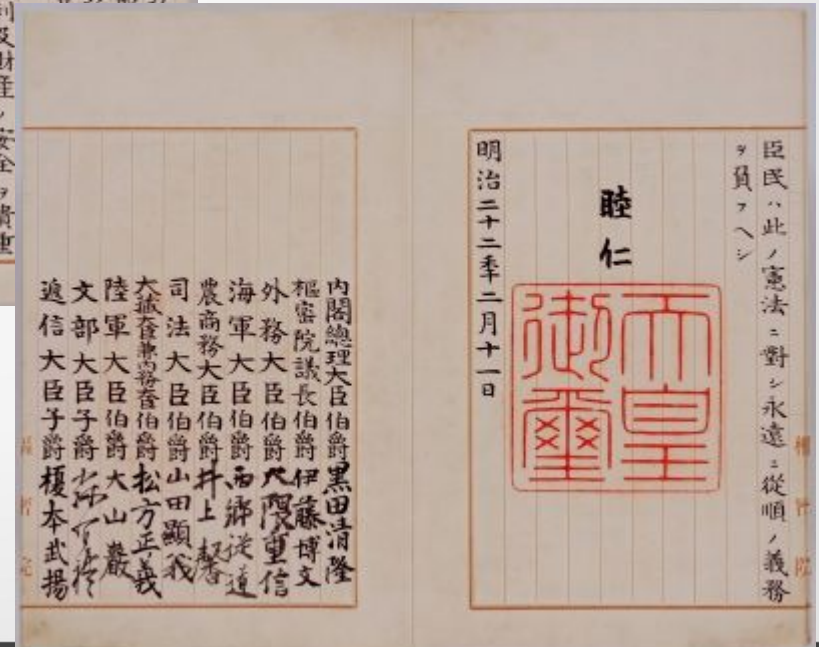 臣民ハ此ノ憲法ニ對シ永遠ニ從順ノ義務
ヲ負フヘシ
睦仁
天皇
御璽
明治二十二秊二月十一日
內閣總理大臣伯爵黑田清隆
樞密院議長伯爵伊藤博文
外務大臣伯爵大隈重信
海軍大臣伯爵西鄉從道
農商務大臣伯爵井上馨
司法大臣伯爵山田顯義
大藏大臣兼內務大臣伯爵松方正義
陸軍大臣伯爵大山巖
文部大臣子爵
遞信大臣子爵榎本武揚
財産ノ安全ヲ貴重